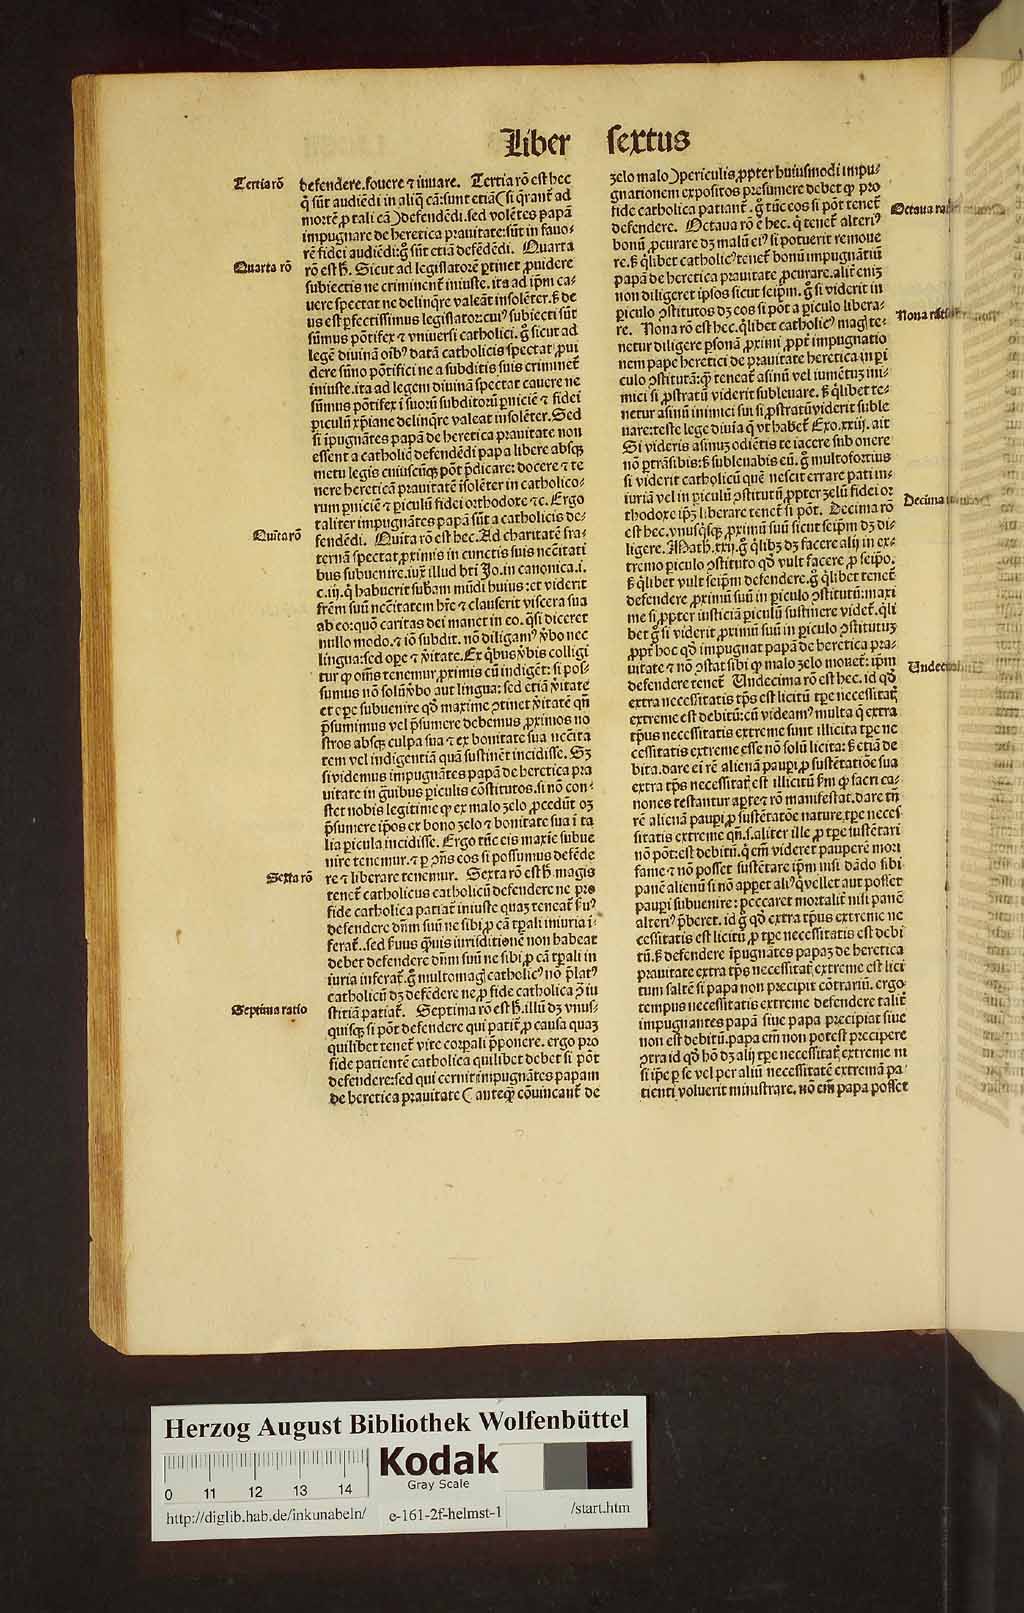 Liber sextus
Tertia rō
Quarta rō
Quīta rō
Sexta rō
Septima ratio
defendere. fouere ⁊ iuuare. Tertia rō est hec
q̄ sūt audiēdi in aliq̄ cā: sunt etiā (si q̄rant᷑ ad
mortē ꝓ tali cā) defendēdi. sed volētes papā
impugnare de heretica prauitate: sūt in fauo⸗
rē fidei audiēdi: g̊ sūt etiā defēdēdi. Quarta
rō est h̄. Sicut ad legislatorē ꝑtinet ꝓuidere
subiectis ne criminent᷑ iniuste. ita ad ip̄m ca⸗
uere spectat ne delinq̄re valeāt insolēter. s̄ de
us est ꝑfectissimus legislator: cuiꝰ subiecti sūt
sūmus pōtifex ⁊ vniuersi catholici. g̊ sicut ad
legē diuinā oībꝰ datā catholicis spectat ꝓui
dere sūno pōtifici ne a subditis suis criminet᷑
iniuste. ita ad legem diuinā spectat cauere ne
sūmus pōtifex ī suorū subditorū ꝑniciē ⁊ fidei
ꝑiculū xp̄iane delinq̄re valeat insolēter. Sed
si īpugnātes papā de heretica prauitate non
essent a catholic̄ defendēdi papa libere absqꝫ
metu legis cuiuscūqꝫ pōt p̄dicare: docere ⁊ te
nere hereticā prauitatē īsolēter in catholico⸗
rum ꝑniciē ⁊ ꝑiculū fidei orthodoxe ⁊c. Ergo
taliter impugnātes papā sūt a catholicis de⸗
fendēdi. Quīta rō est hec. Ad charitatē fra⸗
ternā spectat ꝓximis in cunctis suis nec̄itati
bus subuenire. iux̄ illud bti Jo. in canonica. i.
c. iij. q̇ habuerit sub̄am mūdi huius: et viderit
fr̄em suū nec̄itatem hr̄e ⁊ clauserit viscera sua
ab eo: quō caritas dei manet in eo. q̄si diceret
nullo modo. ⁊ iō subdit. nō diligamꝰ v̄bo nec
lingua: sed oꝑe ⁊ v̄itate. Ex q̇bus v̄bis colligi
tur ꝙ om̄s tenemur ꝓximis cū indigēt: si pos⸗
sumus nō solū v̄bo aut lingua: sed etiā v̄itate
et oꝑe subuenire qd̓ maxime ꝯtinet v̄itatē qn̄
p̄sumimus vel p̄sumere debemus ꝓximos no
stros absqꝫ culpa sua ⁊ ex bonitate sua nec̄ita
tem vel indigentiā quā sustinēt incidisse. Sꝫ
si videmus impugnātes papā de heretica pra
uitate in g̈uibus ꝑiculis cōstitutos. si nō con⸗
stet nobis legitime ꝙ ex malo zelo ꝓcedūt oꝫ
p̄sumere ip̄os ex bono zelo ⁊ bonitate sua ī ta
lia ꝑicula incidisse. Ergo tūc eis maxīe subue
nire tenemur. ⁊ ꝑ ꝯn̄s eos si possumus defēde
re ⁊ liberare tenemur. Sexta rō est h̄. magis
tenet᷑ catholicus catholicū defendere ne pro
fide catholica patiat᷑ iniuste quaꝫ teneat᷑ ẜuꝰ
defendere dn̄m suū ne sibi ꝓ cā tꝑali iniuria i⸗
ferat᷑. sed ẜuus q̄uis iurisditionē non habeat
debet defendere dn̄m suū ne sibi ꝓ cā tꝑali in
iuria inferat᷑. g̊ multomagꝭ catholicꝰ nō p̄latꝰ
catholicū dꝫ defēdere ne ꝓ fide catholica ꝯ iu
stitiā patiat᷑. Septima rō est h̄. illū dꝫ vnus⸗
quisqꝫ si pōt defendere qui patit᷑ ꝓ causa quaꝫ
quilibet tenet᷑ vite corꝑali p̄ponere. ergo pro
fide patientē catholica quilibet debet si pōt
defendere: sed qui cernit impugnātes papam
de heretica prauitate (anteq̄ꝫ cōuincant᷑ de
zelo malo) periculis ꝓpter huiusmodi impu⸗
gnationem expositos presumere debet ꝙ pro
fide catholica patiant᷑. g̊ tūc eos si pōt tenet᷑
defendere. Octaua rō ē hec. q̇ tenet᷑ alteriꝰ
bonū ꝓcurare dꝫ malū eiꝰ si potuerit remoue
re. s̄ q̇libet catholicꝰ tenet᷑ bonū impugnātiū
papā de heretica prauitate ꝓcurare. aliť enīꝫ
non diligeret ipsos sicut seip̄m. g̊ si viderit in
ꝑiculo ꝯstitutos dꝫ eos si pōt a ꝑiculo libera⸗
re. Nona rō est hec. q̇libet catholicꝰ magꝭ te⸗
netur diligere ꝑsonā ꝓximi ꝓpt᷑ impugnatio
nem pape heretici de prauitate heretica in ꝑi
culo ꝯstitutā: q̄ꝫ teneat᷑ asinū vel iumētuꝫ ini⸗
mici si ꝓstratū viderit subleuare. s̄ q̇libet te⸗
netur asinū inimici sui si ꝓstratū viderit suble
uare: teste lege diuīa q̄ vt habet᷑ Exo. xxiij. ait
Si videris asinuꝫ odiētis te iacere sub onere
nō ꝑtrāsibis: s̄ subleuabis eū. g̊ multofortius
si viderit catholicū quē nescit errare pati in⸗
iuriā vel in ꝑiculū ꝯstitutū ꝓpter zelū fidei or
thodoxe ip̄ꝫ liberare tenet᷑ si pōt. Decima rō
est hec. vnusq̇sqꝫ ꝓximū suū sicut seip̄m dꝫ di⸗
ligere. Math. xxij. g̊ q̇libꝫ dꝫ facere alij in ex⸗
tremo ꝑiculo ꝯstituto qd̓ vult facere ꝓ seip̄o.
s̄ q̇libet vult seip̄m defendere. g̊ q̇libet tenet᷑
defendere ꝓximū suū in ꝑiculo ꝯstitutū: maxi
me si ꝓpter iusticiā ꝑiculū sustinere videt᷑. q̇li
bet g̊ si viderit ꝓximū suū in ꝑiculo ꝯstitutuꝫ
ꝓpt᷑ hoc qd̓ impugnat papā de heretica pra⸗
uitate ⁊ nō ꝯstat sibi ꝙ malo zelo mouet᷑: ip̄m
defendere tenet᷑ Undecima rō est hec. id qd̓
extra necessitatis tp̄s est licitū tꝑe necessitatꝭ
extreme est debitū: cū videamꝰ multa q̄ extra
tp̄us necessitatis extreme sunt illicita tꝑe ne
cessitatis extreme esse nō solū licita: s̄ etiā de
bita. dare ei rē alienā pauꝑi ꝓ sustētatiōe sua
extra tp̄s necessitatꝭ est illicitū ẜm ꝙ sacri ca⸗
nones testantur aꝑte ⁊ rō manifestat. dare tn̄
rē alienā pauꝑi ꝓ sustētatōe nature tꝑe neces
sitatis extreme qn̄. s. aliter ille ꝓ tꝑe sustētari
nō pōt: est debitū. q̇ em̄ videret pauperē mori
fame ⁊ nō posset sustētare ip̄m nisi dādo sibi
panē alienū si nō apꝑet aliꝰ q̇ vellet aut posset
pauꝑi subuenire: peccaret mortalit᷑ nisi panē
alteriꝰ p̄beret. id g̊ qd̓ extra tp̄us extreme ne
cessitatis est licitū ꝓ tꝑe necessitatis est debi
tū. s̄ defendere īpugnātes papaꝫ de heretica
prauitate extra tp̄s necessitatꝭ extreme est lici
tum saltē si papa non precipit cōtrariū. ergo
tempus necessitatis extreme defendere talit᷑
impugnantes papā siue papa precipiat siue
non est debitū. papa em̄ non potest precipere
ꝯtra id qd̓ hō dꝫ alij tꝑe necessitatꝭ extreme ni
si ip̄e ꝑ se vel per aliū necessitatē extremā pa⸗
tienti voluerit ministrare. nō em̄ papa posset
Octaua
Nona
Decima
Herzog August Bibliothek Wolfenbüttel
Kodak
Gray Scale
0 11 12 13 14
http://diglib.hab.de/inkunabeln/ e-161-2f-helmst-1 /start.htm